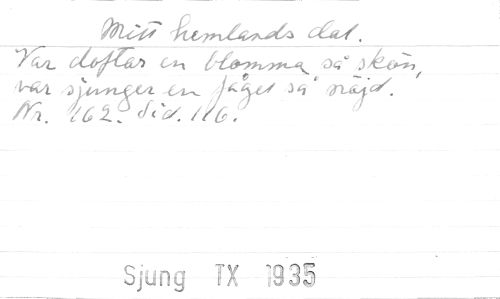 Mitt hemlands dal.
Var doftar en blomma så skön,
var sjunger en fågel så nöjd.
Nr. 162. Sid. 116.
Sjung TX 1935